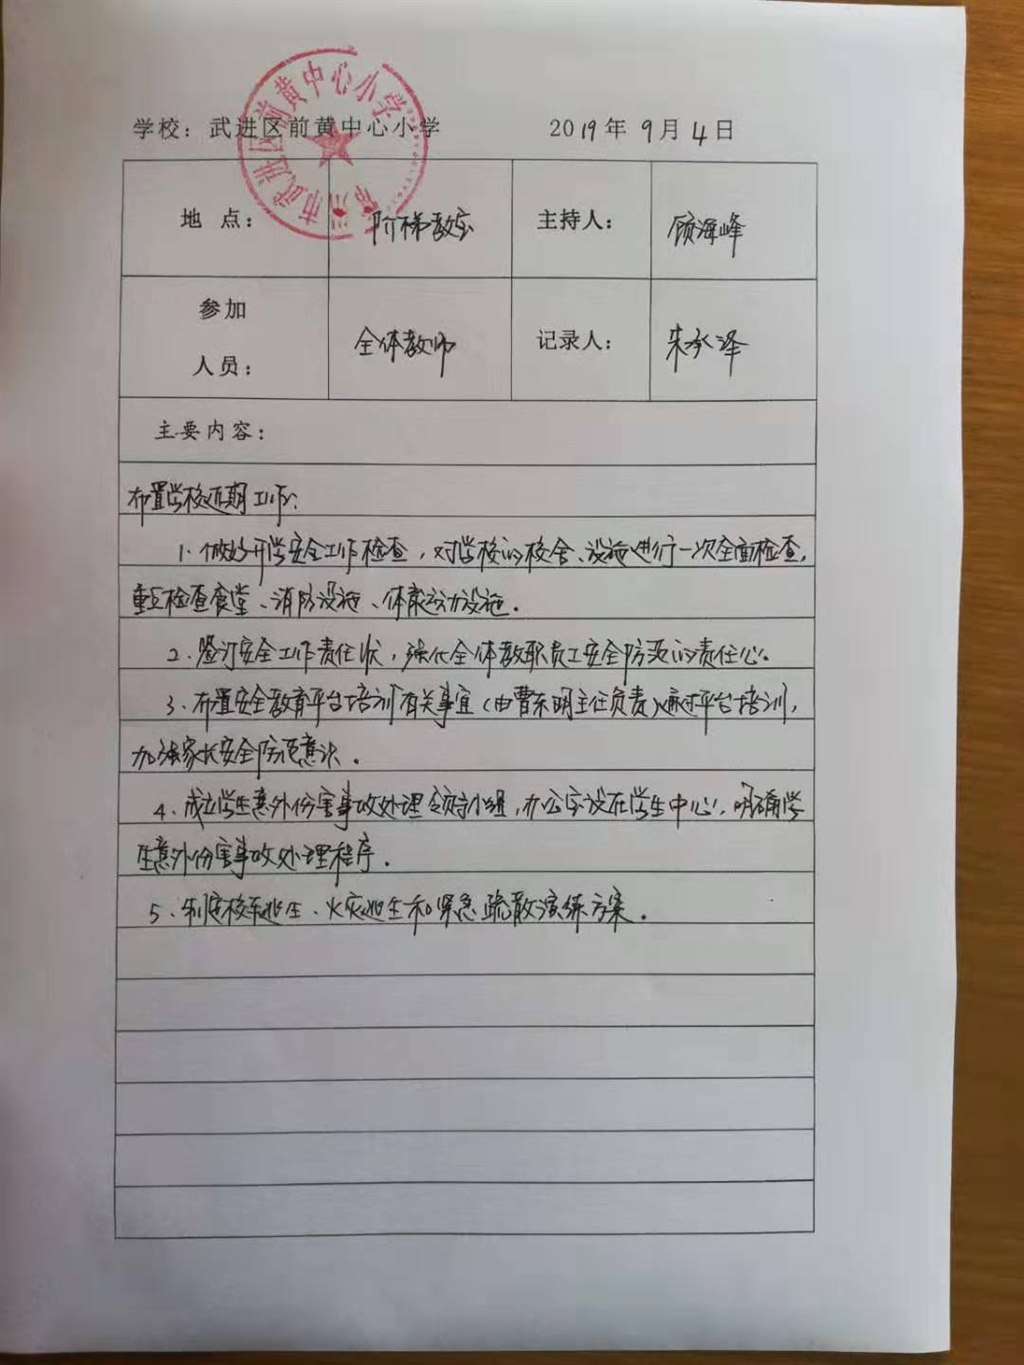 常州市武进区前黄中心小学
学校：武进区前黄中心小学 2019年 9月 4日
地 点： 阶梯教室 主持人： 顾海峰
参加 人员： 全体教师 记录人： 朱承泽
主要内容：
布置学校近期工作：
1、做好开学安全工作检查，对学校的校舍、设施进行一次全面检查，
重点检查食堂、消防设施、体育运动设施。
2、签订安全工作责任状，强化全体教职员工安全防范的责任心。
3、布置安全教育平台培训有关事宜（由曹东明主任负责）通过平台培训，
加强家长安全防范意识。
4、成立学生意外伤害事故处理领导小组，办公室设在学生中心，明确学
生意外伤害事故处理程序。
5、制定校车逃生、火灾逃生和紧急疏散演练方案。